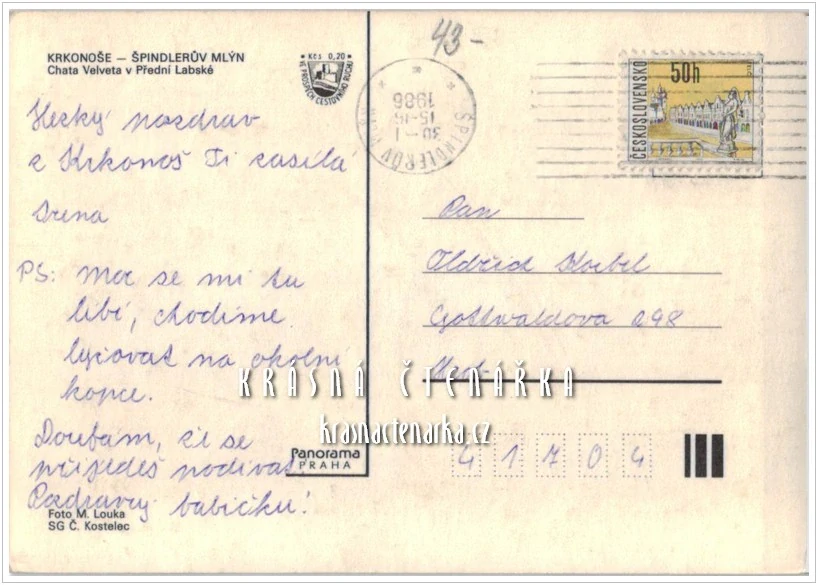 43-
KRKONOŠE – ŠPINDLERŮV MLÝN
Chata Velveta v Přední Labské
Kčs 0,20
VE PROSPĚCH CESTOVNÍHO RUCHU
ŠPINDLERŮV
30-1
15-16
1986
ČESKOSLOVENSKO
50h
Hezký pozdrav
z Krkonoš Ti zasílá
Irena
PS: Moc se mi tu
líbí, chodíme
lyžovat na okolní
kopce.
Doufám, že se
přijedeš podívat.
Pozdravuj babičku!
Pan
Oldřich
Gottwaldova 298
KRÁSNÁ ČTENÁŘKA
krasnactenarka.cz
41704
Panorama
PRAHA
Foto M. Louka
SG Č. Kostelec